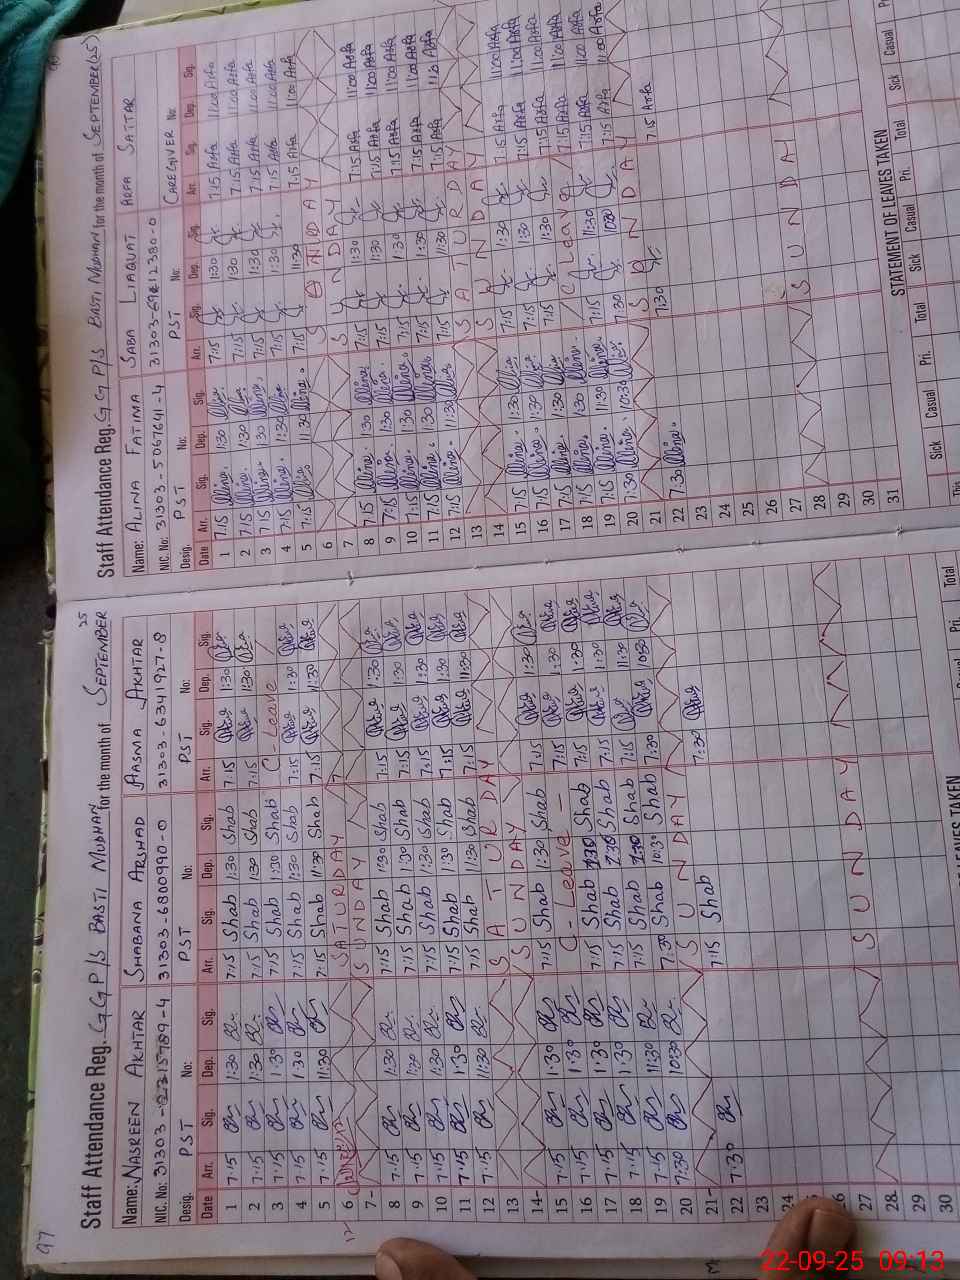 97
Staff Attendance Reg. G G P/S BASTI MUDHAN for the month of SEPTEMBER 25
Name: NASREEN AKHTAR SHABANA ARSHAD AASMA AKHTAR
31303-6800990-0 31303-6341927-8
Desig. PST No: PST No: PST No:
Date Arr. Sig. Dep. Sig. Arr. Sig. Dep. Sig. Arr. Sig. Dep. Sig.
1 7.15 1:30 7:15 Shab 1:30 Shab 7:15 1:30
2 7.15 1:30 7:15 Shab 1:30 Shab 7:15 1:30
3 7.15 1:30 7:15 Shab 1:30 Shab C-Leave
4 7.15 1:30 7:15 Shab 1:30 Shab 7:15 1:30
5 7.15 11:30 7:15 Shab 11:30 Shab 7:15 11:30
6 SATURDAY
7 SUNDAY
8 7.15 1:30 7:15 Shab 1:30 Shab 7:15 1:30
9 7.15 1:30 7:15 Shab 1:30 Shab 7:15 1:30
10 7.15 1:30 7:15 Shab 1:30 Shab 7:15 1:30
11 7.15 1:30 7:15 Shab 1:30 Shab 7:15 1:30
12 7.15 11:30 7:15 Shab 11:30 Shab 7:15 11:30
13 SATURDAY
14 SUNDAY
15 7.15 1:30 7:15 Shab 1:30 Shab 7:15 1:30
16 7.15 1:30 C-Leave- 7:15 1:30
17 7.15 1:30 7:15 Shab Shab 7:15 1:30
18 7.15 1:30 7:15 Shab Shab 7:15 1:30
19 7.15 11:30 7:15 Shab Shab 7:15 11:30
20 7:30 10:30 7:30 Shab 10:30 Shab 7:30 10:30
21 SUNDAY
22 7:30 7:15 Shab 7:30
23
24
26
27 SUNDAY
28
29
30
Total Pri. Total
LEAVES TAKEN
Staff Attendance Reg. G G P/S BASTI MUDHAN for the month of SEPTEMBER (25)
Name: ALINA FATIMA SABA LIAQUAT ARFA SATTAR
NIC. No: 31303-5067641-4
Desig. PST No: PST No: CAREGIVER No:
Date Arr. Sig. Dep. Sig. Arr. Sig. Dep. Sig. Arr. Sig. Dep. Sig.
1 7:15 Alina. 1:30 Alina 7:15 1:30 7:15 Arfa 11:00 Arfa
2 7:15 Alina. 1:30 Alina 7:15 1:30 7:15 Arfa 11:00 Arfa
3 7:15 Alina. 1:30 Alina 7:15 1:30 7:15 Arfa 11:00 Arfa
4 7:15 Alina. 1:30 Alina 7:15 1:30 7:15 Arfa 11:00 Arfa
5 7:15 Alina 11:30 Alina. 7:15 11:30 7:15 Arfa 11:00 Arfa
6
7 SUNDAY
8 7:15 Alina. 1:30 Alina 7:15 1:30 7:15 Arfa 11:00 Arfa
9 7:15 Alina. 1:30 Alina. 7:15 1:30 7:15 Arfa 11:00 Arfa
10 7:15 Alina. 1:30 Alina. 7:15 1:30 7:15 Arfa 11:00 Arfa
11 7:15 Alina. 1:30 Alina. 7:15 1:30 7:15 Arfa 11:00 Arfa
12 7:15 Alina. 11:30 Alina 7:15 11:30 7:15 Arfa Arfa
13 SATURDAY
14 SUNDAY
15 7:15 Alina. 1:30 Alina 7:15 1:30 7:15 Arfa 11:00 Arfa
16 7:15 Alina. 1:30 Alina 7:15 1:30 7:15 Arfa 11:00 Arfa
17 7:15 Alina. 1:30 Alina 7:15 1:30 7:15 Arfa 11:00 Arfa
18 7:15 Alina. 1:30 Alina C Leave 7:15 Arfa 11:00 Arfa
19 7:15 Alina. 11:30 Alina 7:15 11:30 7:15 Arfa 11:00 Arfa
20 7:30 Alina. 10:30 Alina 7:30 10:30 7:15 Arfa 11:00 Arfa
21 SUNDAY
22 7:30 Alina. 7:30 7:15 Arfa
23
24
25
26
27
28 SUNDAY
29
30
31
STATEMENT OF LEAVES TAKEN
Sick Casual Pri. Total Sick Casual Pri. Total Sick Casual
This
22-09-25 09:13